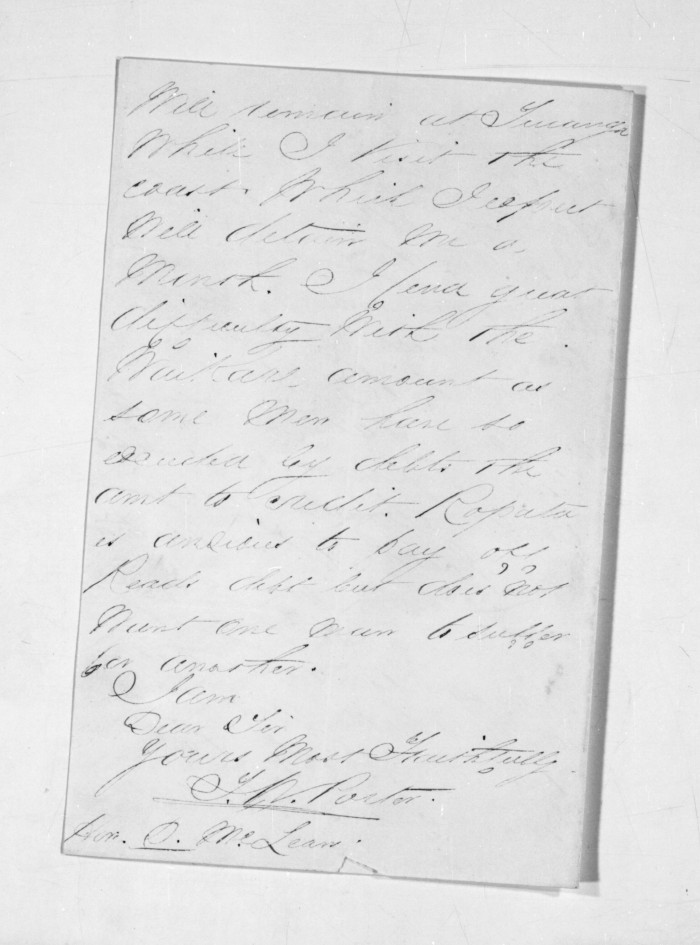 Will remain at Turanga
While I visit the
coast. Which I expect
Will detain me a
Month. I find great
difficulty with the
Waikare amount as
some men have so
exceeded by debts the
amt to credit. Ropata
is anxious to pay off
Reads debt but does not
Want one man to suffer
for another.
I am
Dear Sir
Yours Most Faithfully
T. W. Porter.
Hon. D. McLean.